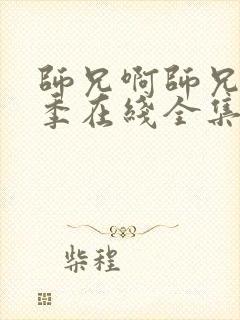 師兄啊師兄
季在綫全集
柴程